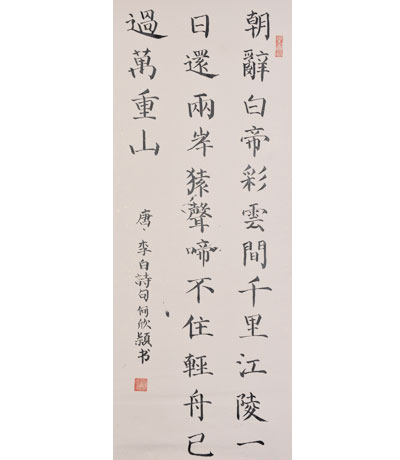 朝辭白帝彩雲間千里江陵一
日還兩岸猿聲啼不住輕舟已
過萬重山
唐、李白詩句何欣穎书